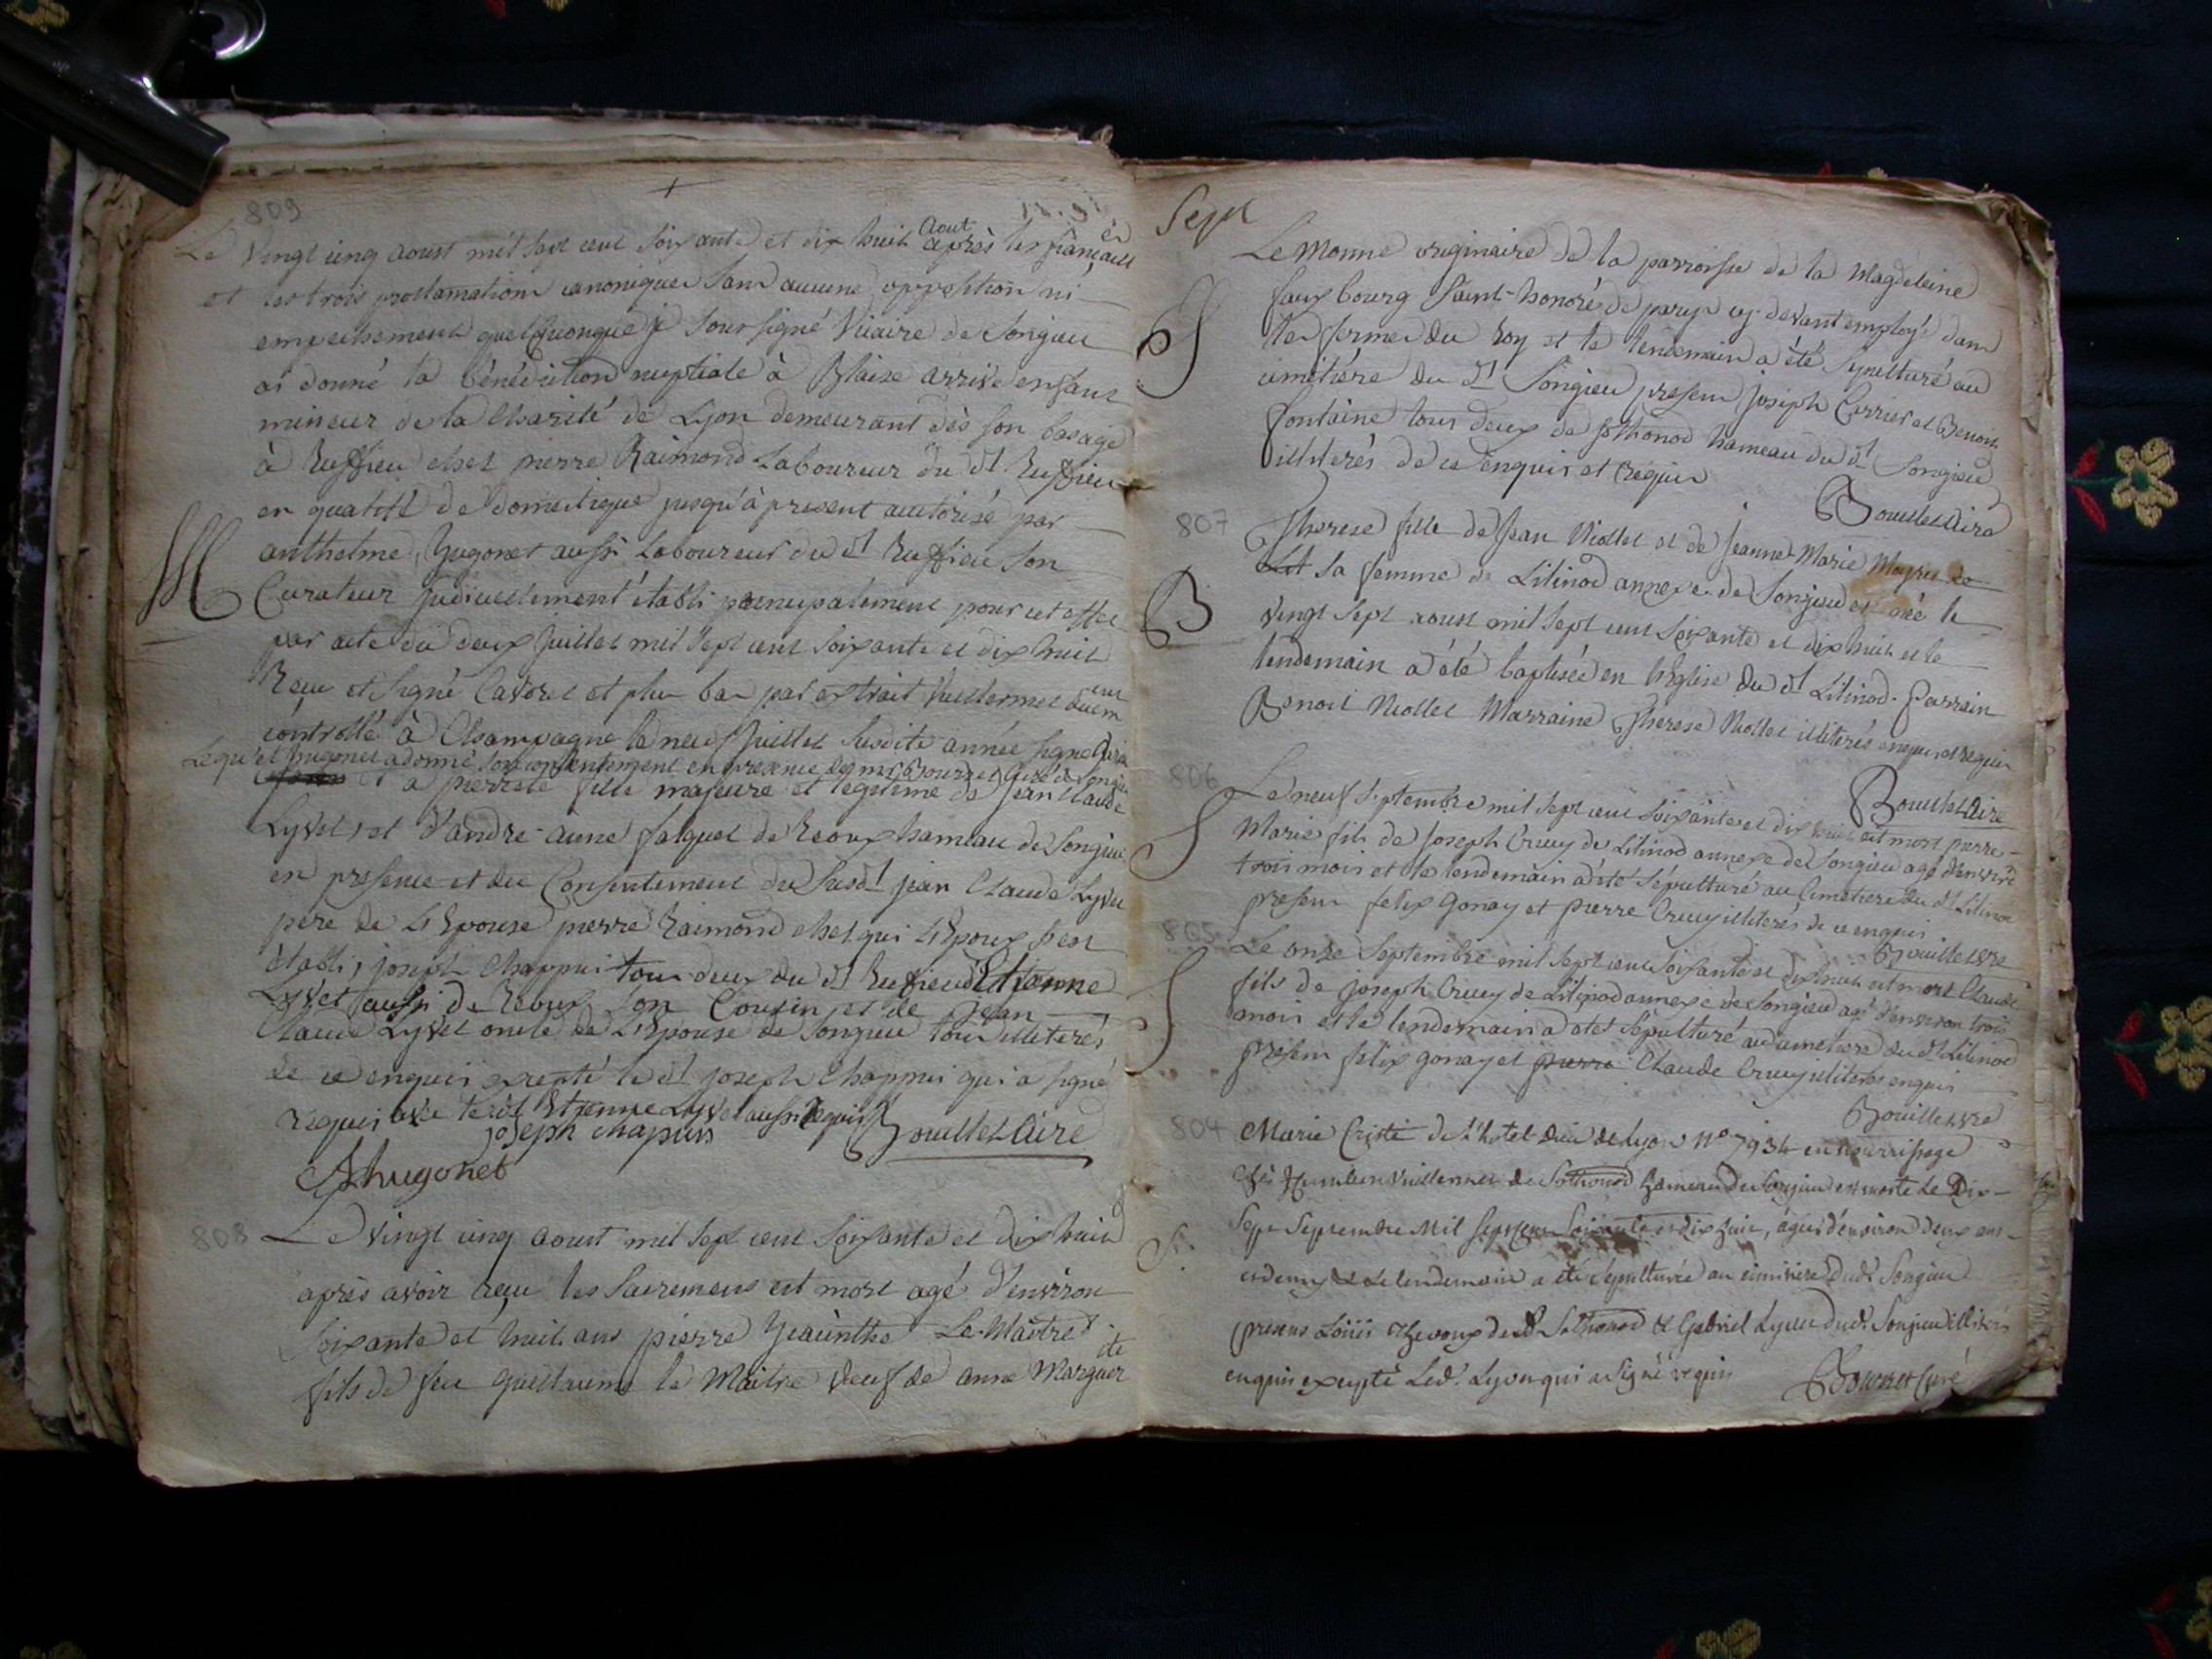 809
Aout
Le vingt cinq aoust mil sept cent soixante et dix huit après les fiançailles
et les trois proclamations canoniques sans aucune opposition ni
empechement quelquonque je soussigné Vicaire de Songieu
ai donné la bénédiction nuptiale à Blaise arrive enfant
mineur de la Charité de Lyon demeurant dès son bas age
à Ruffieu chez pierre Raimond Laboureur du dt Ruffieu
en qualité de domestique jusqu'à present autorisé par
M
anthelme hugonet aussi Laboureur du dt Ruffieu son
Curateur judiciellement établi principalement pour cet effet
par acte du deux juillet mil sept cent soixante et dix huit
Reçu et signé Cavoret et plus bas par extrait Vuillermet duem
ent
controllé à Champagne le neuf juillet susdite année signé
Lequel hugonet a donné son consentement en presence de mr Bourdet Curé de Songieu
et à pierrete fille majeure et legitime de jean claude
Lyvet, et d'andre-aune falquet de Reoux hameau de Songieu
en presence et du Consentement du susdt jean Claude Lyvet
père de L'Epouse pierre Raimond chez qui L'Epoux s'est
établi, joseph Chappuis tous deux du dt Ruffieu Etienne
Lyvet aussi de Reoux son Cousin et de jean
Claude Lyvet oncle de L'Epouse de Songieu tous illiterés
de ce enquis excepté le dt joseph Chappuis qui a signé
requis avec le dt Etienne Lyvet aussi requis
joseph chapuis
hugonet
808
Le vingt cinq aoust mil sept cent soixante et dix huit
après avoir reçu les sacremens est mort agé d'environ
soixante et huit ans pierre Hyacinthe Le Maître
fils de feu guillaume le Maître veuf de anne Marguer
ite
Sept
Le Monne originaire de la parroisse de la Magdeleine
faux bourg Saint-honoré de paris cy-devant employé dans
S
les fermes du Roy et le lendemain a été sepulturé au
cimétière du dt Songieu presens joseph Carrier et Benoit
fontaine tous deux de Sothonod hameau du dt Songieu
illiterés de ce enquis et requis
807
Therese fille de jean Niollet et de jeanne Marie
B
sa femme de Lilinod annexe de Songieu est née le
vingt sept aoust mil sept cent soixante et dix huit et le
lendemain a été baptisée en l'Eglise du dt Lilinod. Parrain
Benoit Niollet Marraine Therese Niollet illiterés enquis et requis
806
Le neuf septembre mil sept cent soixante et dix huit est mort pierre
S
Marie fils de joseph Cruy de Lilinod annexe de Songieu agé d'environ
trois mois et le lendemain a été sépulturé au Cimetiere du dt Lilinod
presens felix gonay et pierre Cruy illiterés de ce enquis
805
Le onze septembre mil sept cent soixante et dix huit est mort Claude
S
fils de joseph Cruy de Lilinod annexe de Songieu agé d'environ trois
mois et le lendemain a été sépulturé au cimetiere du dt Lilinod
presens felix gonay et pierre Claude Cruy illiterés enquis
804
Marie Criste de l'hotel dieu de Lyon n° 7934 en nourrissage
chès humbert Vuillermet de Sothonod hameau de Songieu est morte Le Dix-
S
sept septembre mil sept cent soixante et dix huit, agée d'environ deux ans
et demy et Le lendemain a été sépulturée au cimitiere dudt Songieu
presens Loüis de Sothonod et Gabriel Lyvet dudt Songieu illiterés
enquis excepté Led. Lyvet qui a signé requis
Curé